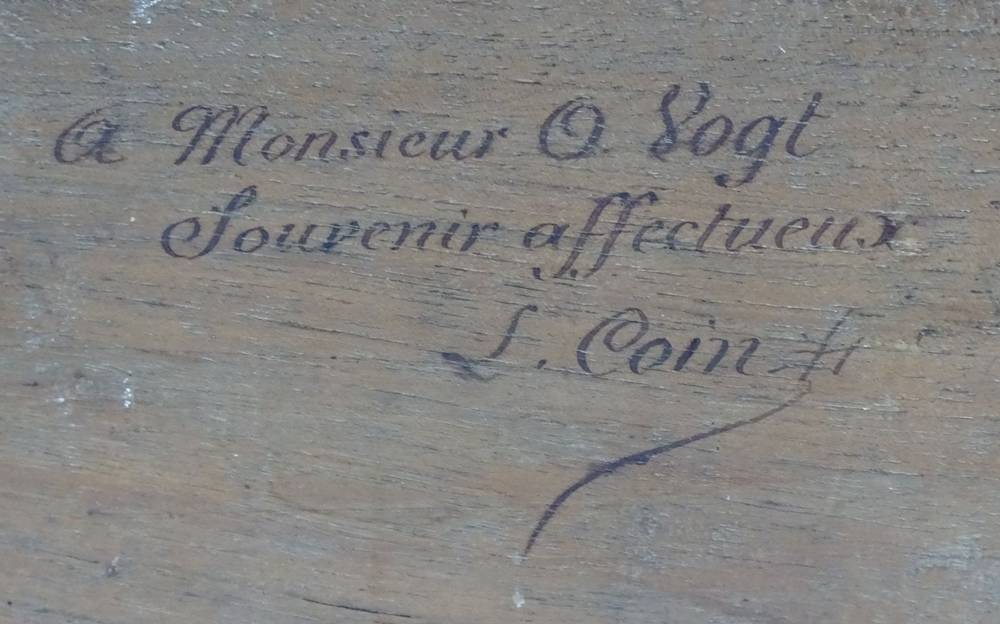 A Monsieur O. Vogt
Souvenir affectueux
L. Coin